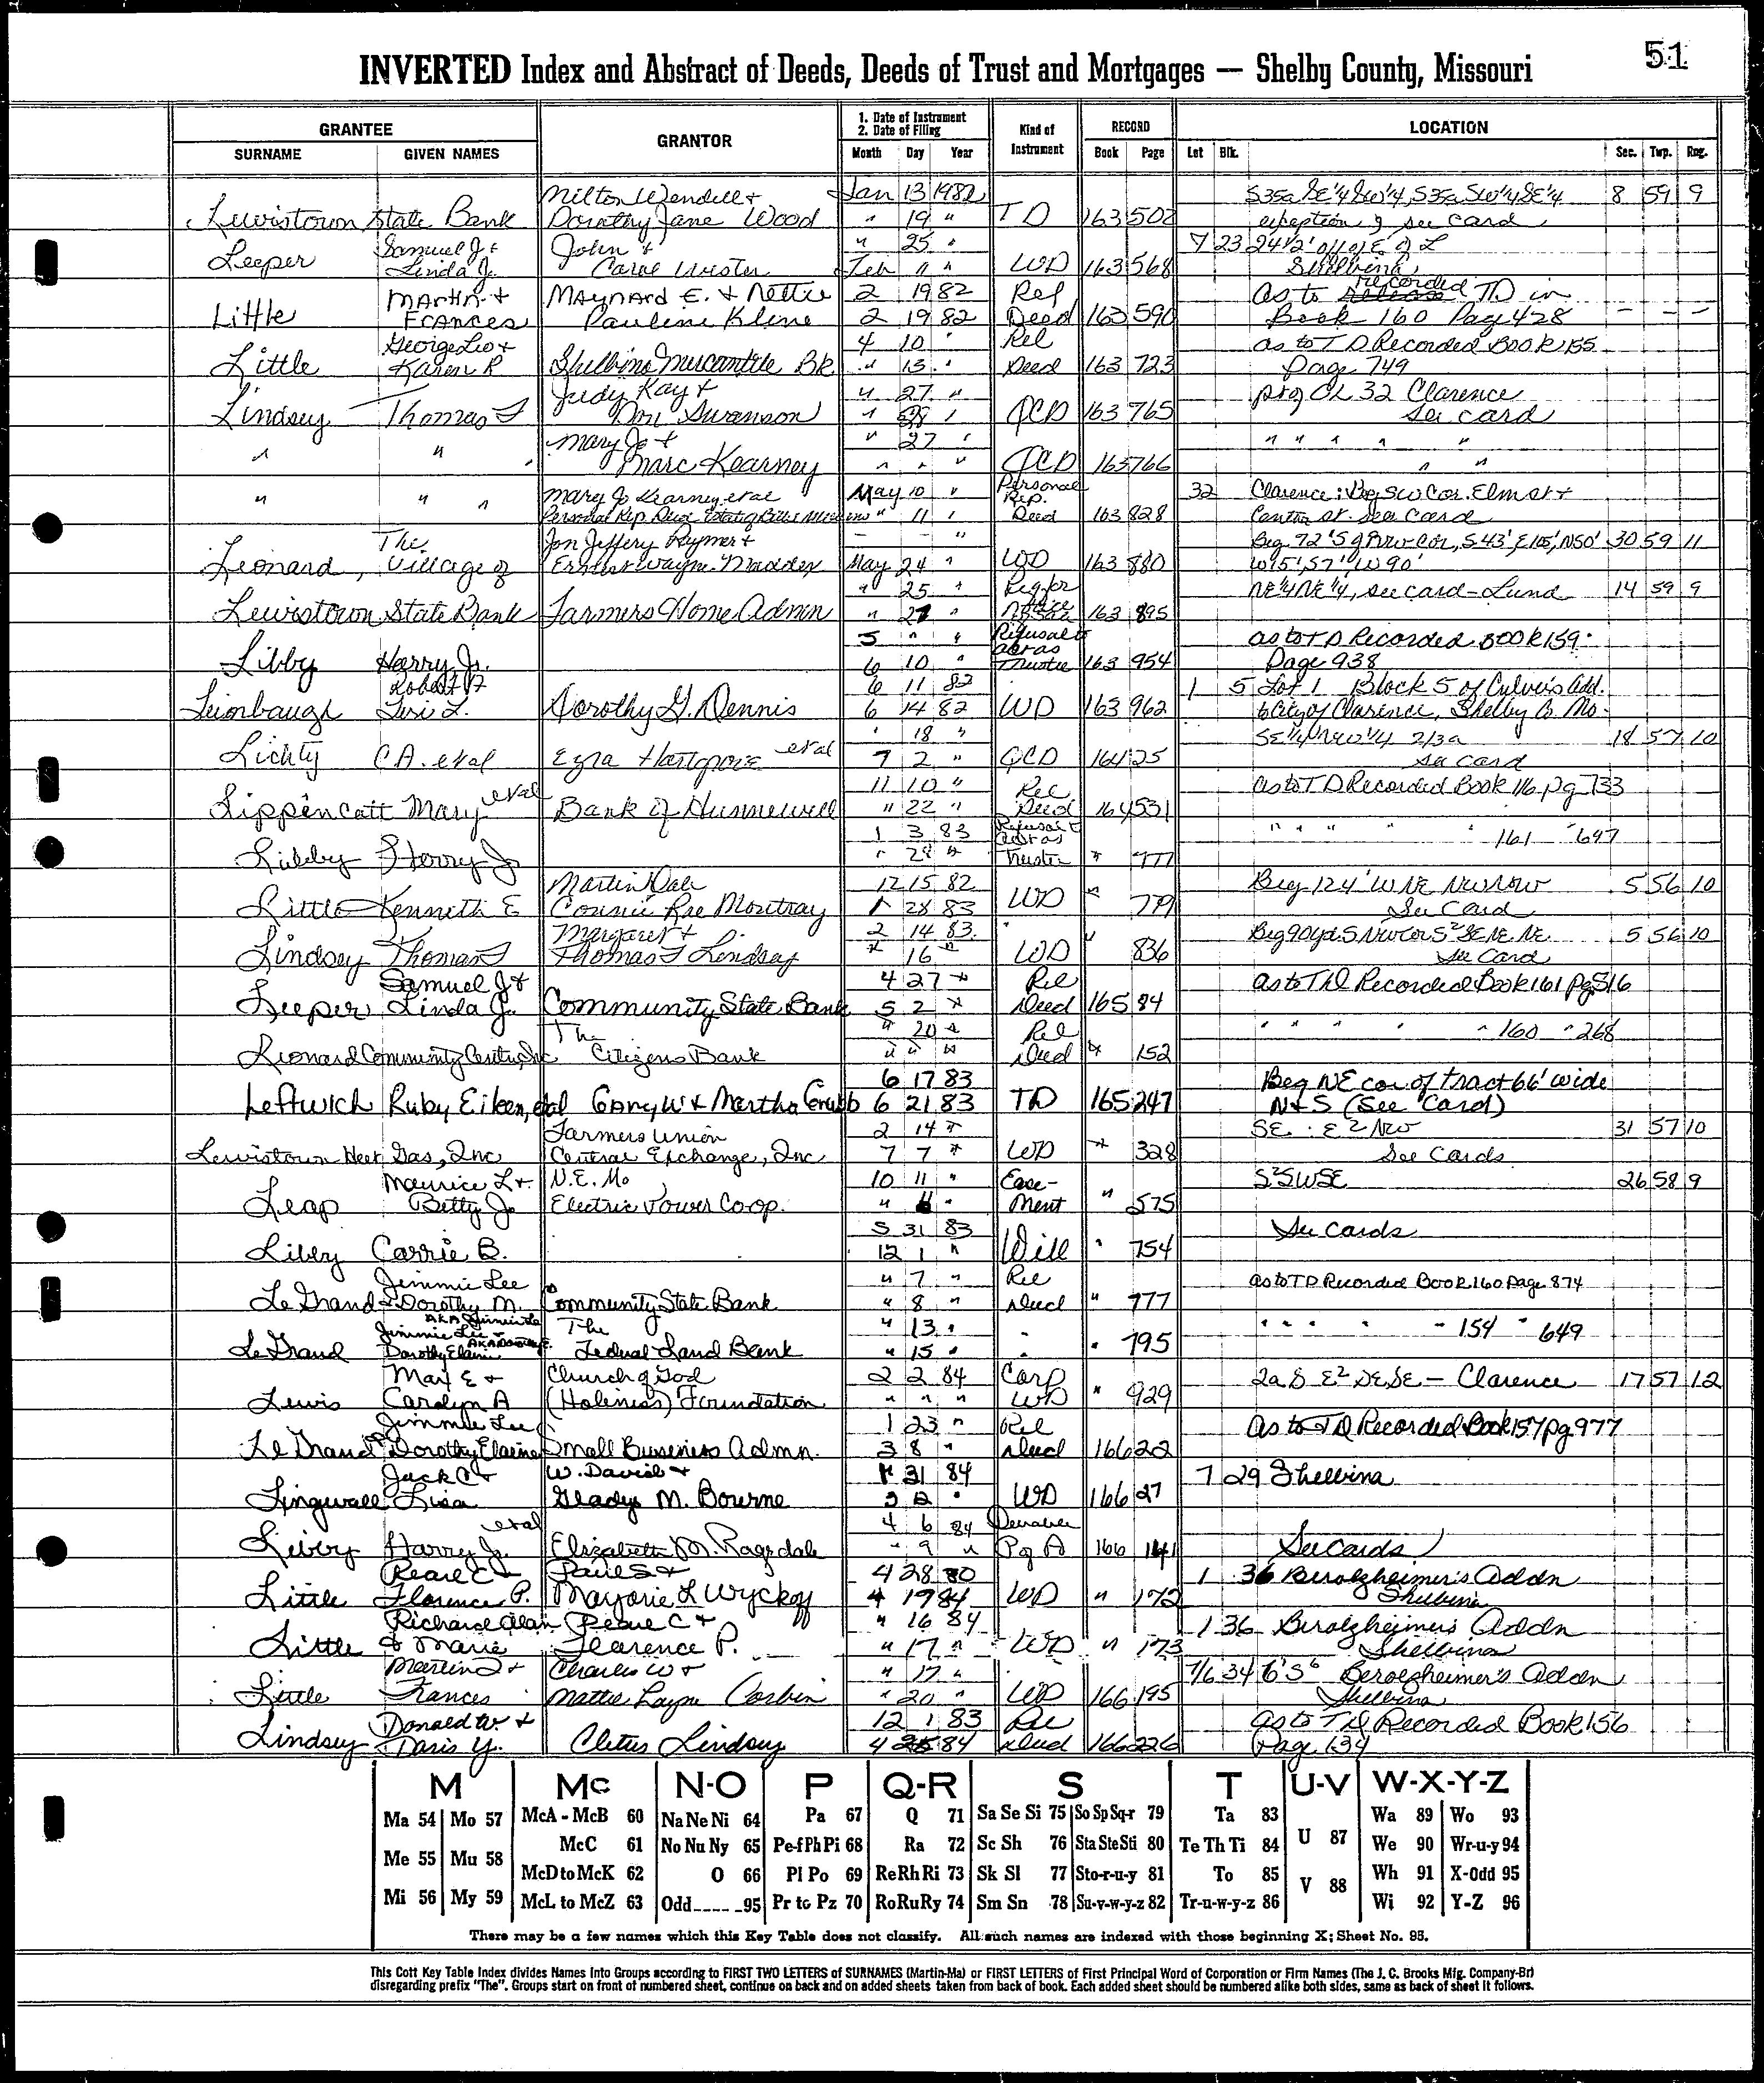 51
INVERTED Index and Abstract of Deeds, Deeds of Trust and Mortgages — Shelby County, Missouri
GRANTEE GRANTOR 1. Date of Instrument 2. Date of Filing Kind of Instrument RECORD LOCATION
SURNAME GIVEN NAMES Month Day Year Book Page Lot Blk. Sec. Twp. Rng.
Milton Wendell & Jan 13 1982 S35a SE 1/4 SW 1/4, S35a SW 1/4 SE 1/4 8 59 9
Lewistown State Bank Dorothy Jane Wood " 19 " TD 163 502 exception of see card
Samuel J & John & " 25 " 7 23 24 1/2' off of E of L
Leeper Linda J. Carol Wester Feb 11 " WD 163 568 Shelbina
Martin & Maynard E. & Nettie 2 19 82 Rel As to recorded TD in
Little Frances Pauline Kline 2 19 82 Deed 163 590 Book 160 Page 428 — — —
George Leo & 4 10 " Rel as to TD Recorded Book 155
Little Karen R Shelbina Mercantile Bk " 15 " Deed 163 723 Page 749
Judy Kay & " 27 " prt of OL 32 Clarence
Lindsey Thomas F Don Swanson " 28 " QCD 163 765 see card
Mary Jo & " 27 " " " " " "
" " Marc Kearney " " " QCD 163 766 " "
" " " Mary Jo Kearney etal May 10 " Personal Rep. 32 Clarence: Beg SW Cor. Elm St &
Personal Rep " 11 " Deed 163 828 Center St. see card
The Jon Jeffery Rymer & — — " Beg 72' S of NW Cor, S 43', E 105', N50' 30 59 11
Leonard, Village of Ernest Wayne Maddex May 24 " WD 163 880 W15', S7', W90'
" 25 " Req for NE 1/4 NE 1/4, see card - Lund 14 59 9
Lewistown State Bank Farmers Home Admn " 27 " 163 895
5 " " Refusal to act as as to TD Recorded Book 159
Libby Harry Jr. 6 10 " Trustee 163 954 Page 938
Robert F 6 11 82 1 5 Lot 1 Block 5 of Culver's Add.
Leionbaugh Teri L. Dorothy G. Dennis 6 14 82 WD 163 962 to City of Clarence, Shelby Co. Mo.
" 18 " SE 1/4 NW 1/4 2/3a 18 57 10
Lichty C A. etal Ezra Hartgrove etal 7 2 " QCD 164 25 see card
11 10 " Rel As to TD Recorded Book 116 pg 733
Lippencott Mary etal Bank of Hunnewell " 22 " Deed 164 531
1 3 83 Refusal to act as " " " " " 161 " 697
Libby Harry Jr " 28 " Trustee " 777
Martin Dale 12 15 82 Beg 124' W NE NW NW 5 56 10
Little Kenneth E Connie Rae Montray 1 28 83 WD " 779 See Card
Margaret & 2 14 83 Beg 90 yds S NW Cor S2 SE NE NE 5 56 10
Lindsey Thomas F Thomas F Lindsay " 16 " WD " 836 See Card
Samuel J & 4 27 " Rel as to TD Recorded Book 161 Pg 516
Leeper Linda J. Community State Bank 5 2 " Deed 165 84
The " 20 " Rel " " " " " 160 " 268
Leonard Community Center, Inc Citizens Bank " " " Deed " 152
6 17 83 Beg NE cor of tract 66' wide
Leftwich Ruby Eileen, etal Gary W & Martha Grubb 6 21 83 TD 165 247 N & S (See Card)
Farmers Union 2 14 " SE : E2 NW 31 57 10
Lewistown Heet Gas, Inc Central Exchange, Inc 7 7 " WD " 328 See Cards
Maurice L & N.E. Mo 10 11 " Ease- S2SWSE 26 58 9
Leap Betty Jo Electric Power Coop. " " " ment " 575
5 31 83 See Cards
Libby Carrie B. 12 1 " Will " 754
Jimmie Lee " 7 " Rel as to TD Recorded Book 160 page 874
LeGrand & Dorothy M. Community State Bank " 8 " Deed " 777
Jimmie Lee & The " 13 " " " " " " 154 " 649
LeGrand Dorothy Elaine Federal Land Bank " 15 " " " 795
Max E & Church of God 2 2 84 Corp 2a S E2 SE SE — Clarence 17 57 12
Lewis Carolyn A (Holiness) Foundation " " " WD " 929
Jimmie Lee 1 23 " Rel As to TD Recorded Book 157 pg 977
LeGrand Dorothy Elaine Small Business Admn. 3 8 " Deed 166 22
Jack C & W. David & 1 31 84 7 29 Shelbina
Lingwall Lisa Gladys M. Bourne 3 12 " WD 166 27
etal 4 6 84 Durable
Libby Harry Jr. Elizabeth M. Ragsdale " 9 " Pg A 166 141 See Cards
Pearl C & Paul S & 4 28 80 1 36 Berolzheimer's Addn
Little Florence P. Marjorie L Wyckoff 4 19 84 WD " 172 Shelbina
Richard Alan Pearl C & " 16 84 1 36 Berolzheimer's Addn
Little & Marie Florence P. " 17 " WD " 173 Shelbina
Martin D & Charles W & " 17 " 7/6 34 6'S6 Berolzheimer's Addn
Little Frances Mattie Layne Corbin " 20 " WD 166 195 Shelbina
Donald W. & 12 1 83 Rel as to TD Recorded Book 156
Lindsey Doris Y. Cletus Lindsey 4 25 84 Deed 166 226 Page 134
M Mc N-O P Q-R S T U-V W-X-Y-Z
Ma 54 Mo 57 McA - McB 60 Na Ne Ni 64 Pa 67 Q 71 Sa Se Si 75 So Sp Sq-r 79 Ta 83 U 87 Wa 89 Wo 93
Me 55 Mu 58 McC 61 No Nu Ny 65 Pe-f Ph Pi 68 Ra 72 Sc Sh 76 Sta Ste Sti 80 Te Th Ti 84 We 90 Wr-u-y 94
McD to McK 62 O 66 Pl Po 69 Re Rh Ri 73 Sk Sl 77 Sto-r-u-y 81 To 85 V 88 Wh 91 X-Odd 95
Mi 56 My 59 McL to McZ 63 Odd____95 Pr to Pz 70 Ro Ru Ry 74 Sm Sn 78 Su-v-w-y-z 82 Tr-u-w-y-z 86 Wi 92 Y-Z 96
There may be a few names which this Key Table does not classify. All such names are indexed with those beginning X; Sheet No. 95.
This Cott Key Table Index divides Names Into Groups according to FIRST TWO LETTERS of SURNAMES (Martin-Ma) or FIRST LETTERS of First Principal Word of Corporation or Firm Names (The J. C. Brooks Mfg. Company-Br)
disregarding prefix "The". Groups start on front of numbered sheet, continue on back and on added sheets taken from back of book. Each added sheet should be numbered alike both sides, same as back of sheet it follows.